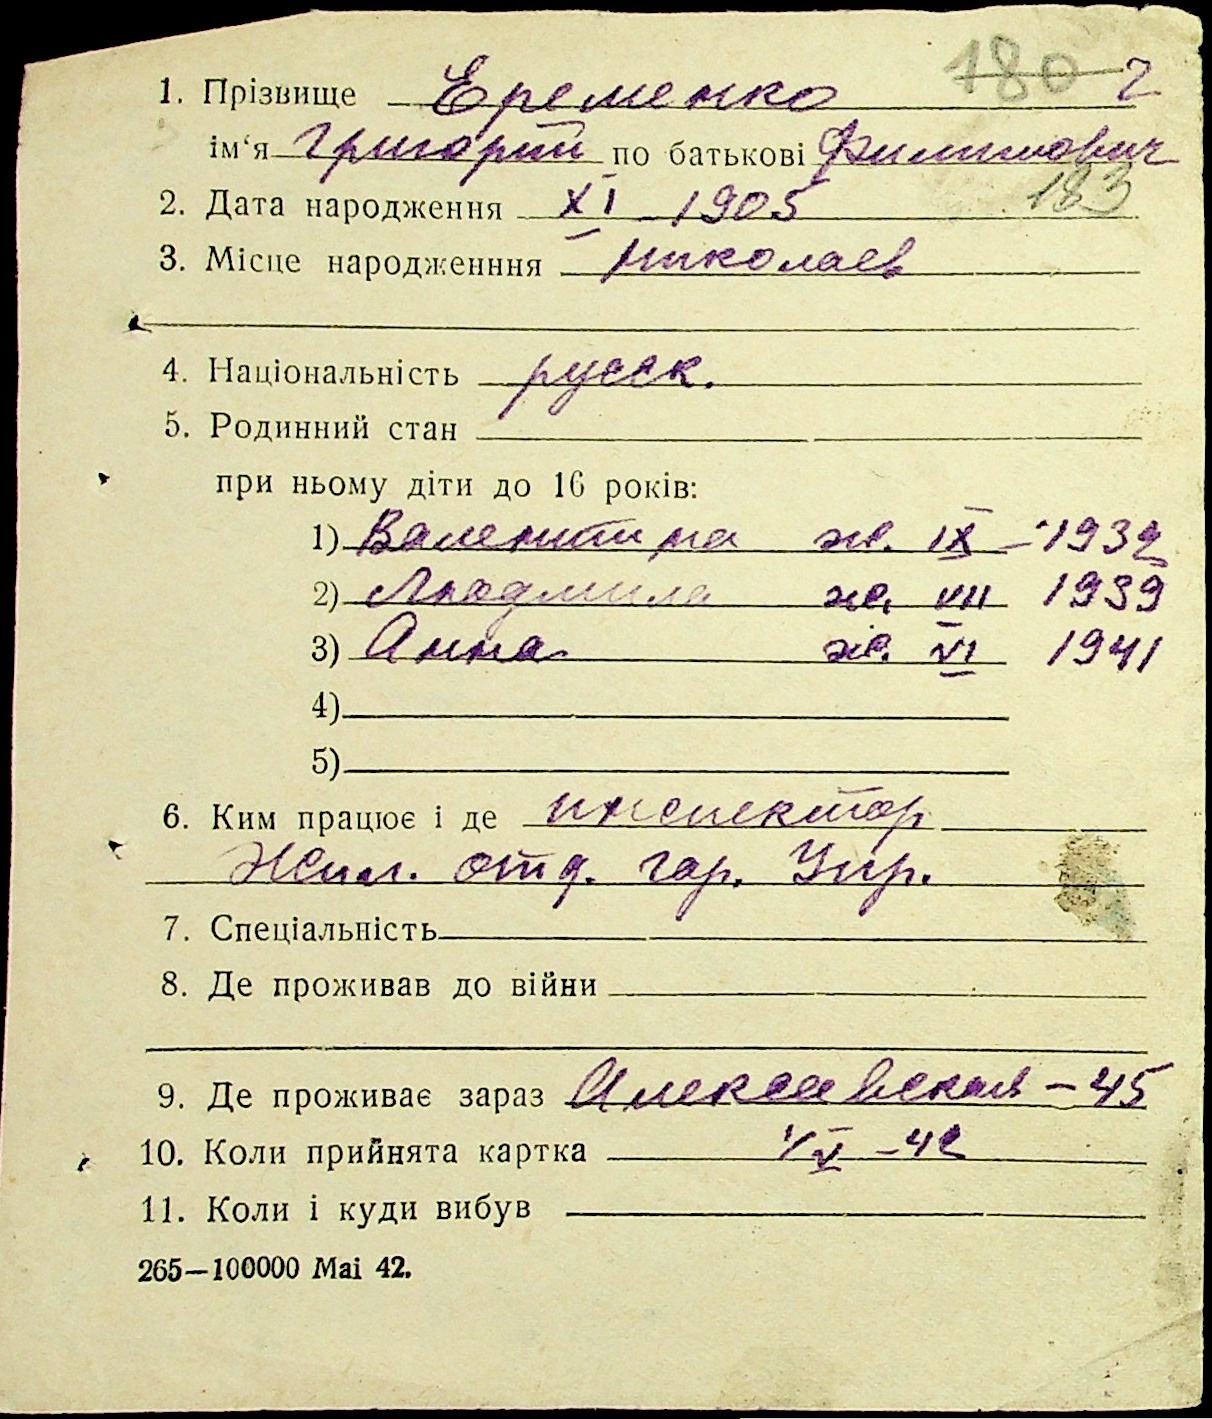 180 2
1. Прізвище Еременко
ім‘я Григорий по батькові Филиппович
183
2. Дата народження XI 1905
3. Місце народженння Николаев
4. Національність русск.
5. Родинний стан
при ньому діти до 16 років:
1) Валентина ж. IX - 1932
2) Людмила ж. VII 1939
3) Анна ж. VI 1941
4)
5)
6. Ким працює і де инспектор
Жил. отд. гор. Упр.
7. Спеціальність
8. Де проживав до війни
9. Де проживає зараз Алексеевская - 45
10. Коли прийнята картка V - 42
11. Коли і куди вибув
265—100000 Маі 42.